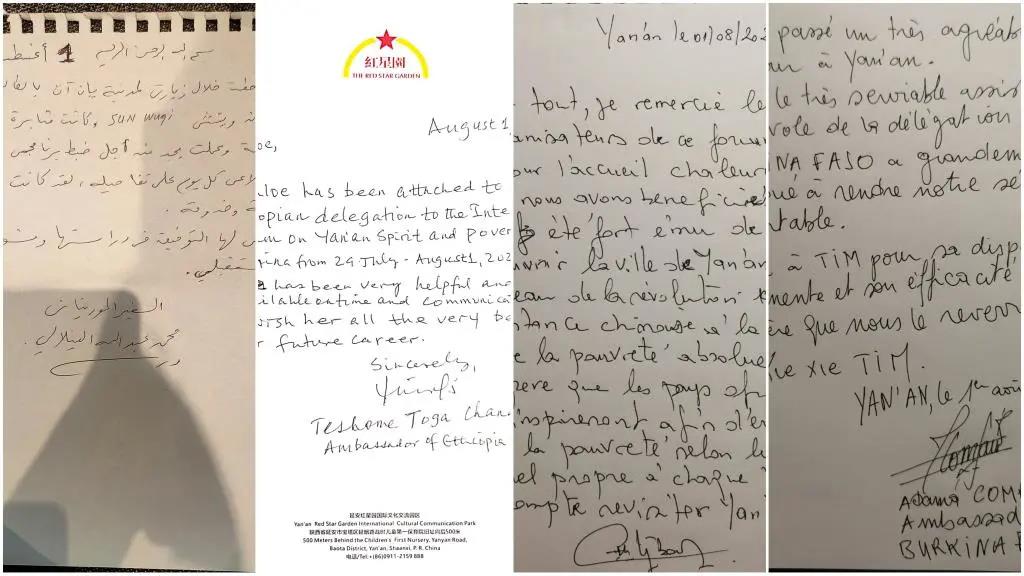 بسم الله الرحمن الرحيم 1 أغسط
خلال زيارتي لمدينة يان آن
sun wugi وكانت مثابرة
أجل ضبط برنامجي
كل يوم على تفاصيله، لقد كانت
لها التوفيق في دراستها
السفير الموريتاني
محمد عبد الله الفيلالي
红星園
THE RED STAR GARDEN
August 1
oe,
loe has been attached to
opian delegation to the Inte
m on Yan'an Spirit and pover
ina from 29 July - August 1, 202
has been very helpful and
ilable on time and communica
ish her all the very be
r future career.
Sincerely,
Teshome Toga Chan
Ambassador of Ethiopia
延安红星园国际文化交流园区
Yan'an Red Star Garden International Cultural Communication Park
陕西省延安市宝塔区延园路战时儿童第一保育院旧址向后500米
500 Meters Behind the Children's First Nursery, Yanyan Road,
Baota District, Yan'an, Shaanxi, P. R. China
电话/Tel:+(86)0911-2159 888
Yan'an le 01/08/202
tout, je remercie le
nisateurs de ce forum
our l'accueil chaleur
nous avons beneficié
été fort ému de
uvrir la ville de Yan'an
eau de la révolution
tance chinoise à la
e la pauvreté absolue
ère que les pays afr
inspireront afin d'é
la pauvreté selon l
el propre à chaque
ompte revisiter Yan
passé un très agréab
ur à Yan'an.
le très serviable assis
vole de la délégation
NA FASO a grandem
ué à rendre notre sé
table.
à TIM pour sa disp
mente et son efficacité
ère que nous le reverr
ie xie TIM.
YAN'AN, le 1er aoû
Adama COM
Ambassad
BURKINA F